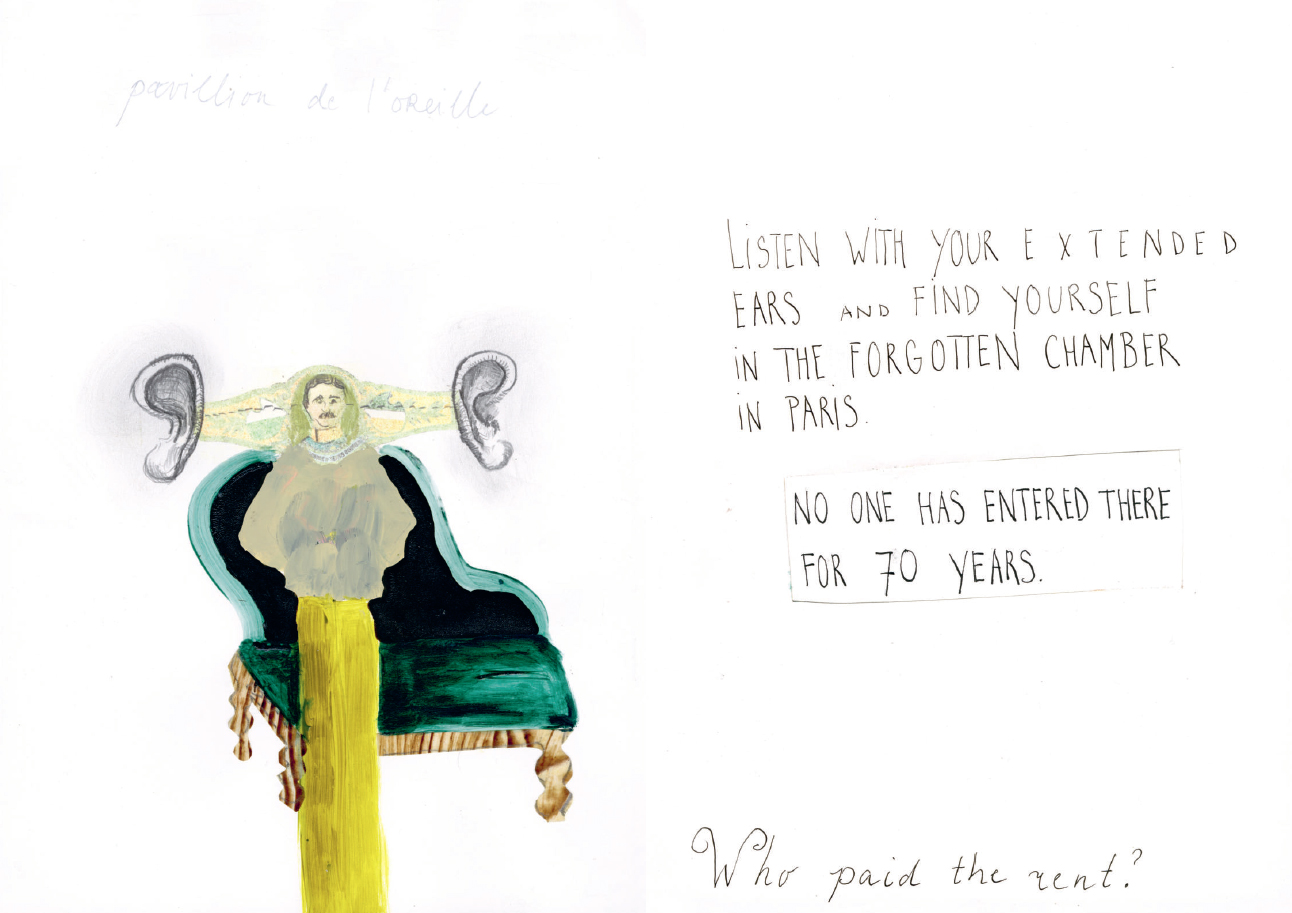 pavillion de l'oreille
LiSTEN WITH YOUR E X T E N D E D
EARS AND FIND YOURSELF
iN THE FORGOTTEN CHAMBER
iN PARIS.
NO ONE HAS ENTERED THERE
FOR 70 YEARS.
Who paid the rent?